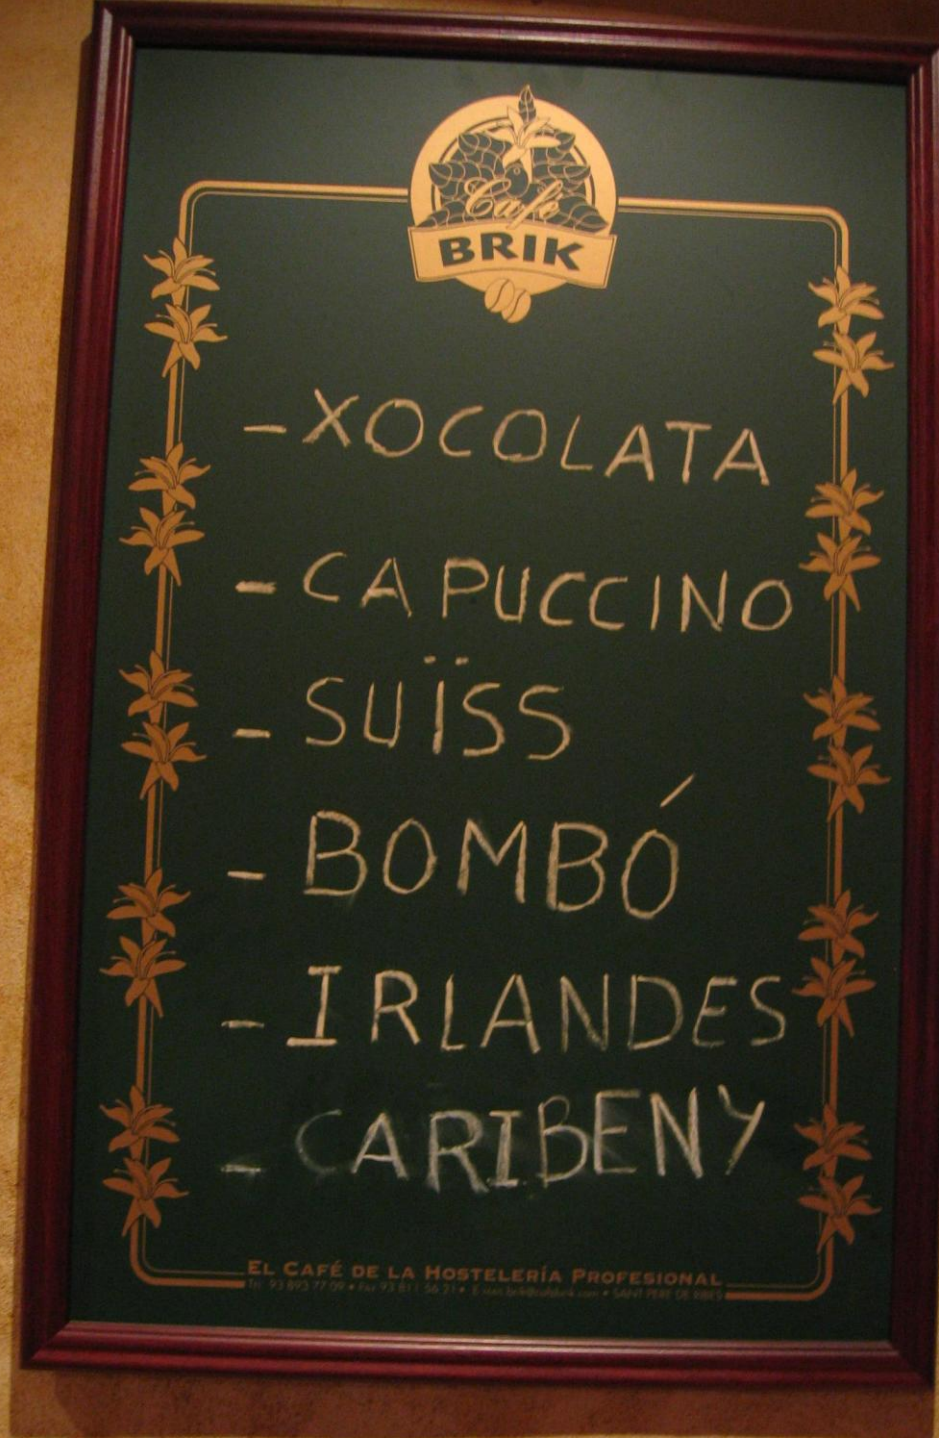 Café
BRIK
- XOCOLATA
- CAPUCCINO
- SUÏSS
- BOMBÓ
- IRLANDES
- CARIBENY
EL CAFÉ DE LA HOSTELERÍA PROFESIONAL
Tel. 93 893 77 09 • Fax 93 811 56 21 • E-mail: brik@cafebrik.com • SANT PERE DE RIBES